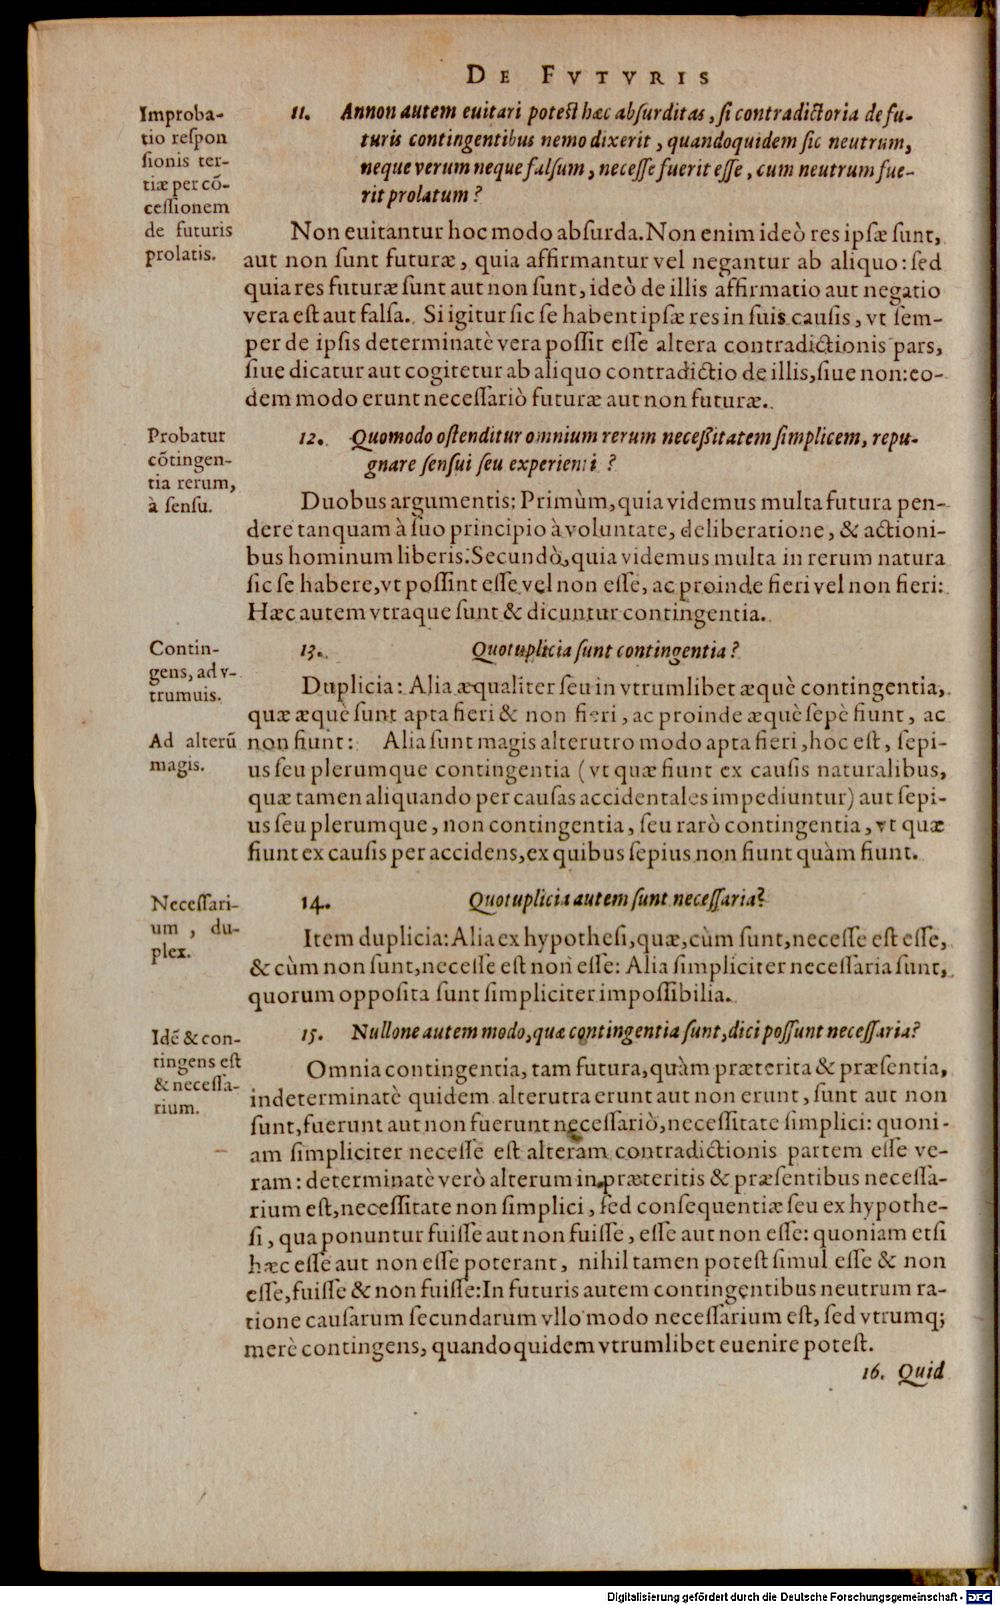 DE FVTVRIS
Improba-
tio respon
sionis ter-
tiæ per cõ-
cessionem
de futuris
prolatis.
11. Annon autem euitari potest hæc absurditas, si contradictoria de fu-
turis contingentibus nemo dixerit, quandoquidem sic neutrum,
neque verum neque falsum, necesse fuerit esse, cum neutrum fue-
rit prolatum?
Non euitantur hoc modo absurda. Non enim ideò res ipsæ sunt,
aut non sunt futuræ, quia affirmantur vel negantur ab aliquo: sed
quia res futuræ sunt aut non sunt, ideò de illis affirmatio aut negatio
vera est aut falsa. Si igitur sic se habent ipsæ res in suis causis, vt sem-
per de ipsis determinatè vera possit esse altera contradictionis pars,
siue dicatur aut cogitetur ab aliquo contradictio de illis, siue non: eo-
dem modo erunt necessariò futuræ aut non futuræ.
Probatur
cõtingen-
tia rerum,
à sensu.
12. Quomodo ostenditur omnium rerum necessitatem simplicem, repu-
gnare sensui seu experienti ?
Duobus argumentis: Primùm, quia videmus multa futura pen-
dere tanquam à suo principio à voluntate, deliberatione, & actioni-
bus hominum liberis. Secundò, quia videmus multa in rerum natura
sic se habere, vt possint esse vel non esse, ac proinde fieri vel non fieri:
Hæc autem vtraque sunt & dicuntur contingentia.
Contin-
gens, ad v-
trumuis.
13. Quotuplicia sunt contingentia?
Duplicia: Alia æqualiter seu in vtrumlibet æquè contingentia,
quæ æquè sunt apta fieri & non fieri, ac proinde æquè sepè fiunt, ac
Ad alterũ
magis.
non fiunt: Alia sunt magis alterutro modo apta fieri, hoc est, sepi-
us seu plerumque contingentia (vt quæ fiunt ex causis naturalibus,
quæ tamen aliquando per causas accidentales impediuntur) aut sepi-
us seu plerumque, non contingentia, seu rarò contingentia, vt quæ
fiunt ex causis per accidens, ex quibus sepius non fiunt quàm fiunt.
Necessari-
um, du-
plex.
14. Quotuplicia autem sunt necessaria?
Item duplicia: Alia ex hypothesi, quæ, cùm sunt, necesse est esse,
& cùm non sunt, necesse est non esse: Alia simpliciter necessaria sunt,
quorum opposita sunt simpliciter impossibilia.
Idẽ & con-
tingens est
& necessa-
rium.
15. Nullone autem modo, quæ contingentia sunt, dici possunt necessaria?
Omnia contingentia, tam futura, quàm præterita & præsentia,
indeterminatè quidem alterutra erunt aut non erunt, sunt aut non
sunt, fuerunt aut non fuerunt necessariò, necessitate simplici: quoni-
am simpliciter necesse est alteram contradictionis partem esse ve-
ram: determinatè verò alterum in præteritis & præsentibus necessa-
rium est, necessitate non simplici, sed consequentiæ seu ex hypothe-
si, qua ponuntur fuisse aut non fuisse, esse aut non esse: quoniam etsi
hæc esse aut non esse poterant, nihil tamen potest simul esse & non
esse, fuisse & non fuisse: In futuris autem contingentibus neutrum ra-
tione causarum secundarum vllo modo necessarium est, sed vtrumq;
merè contingens, quandoquidem vtrumlibet euenire potest.
16. Quid
Digitalisierung gefördert durch die Deutsche Forschungsgemeinschaft - DFG